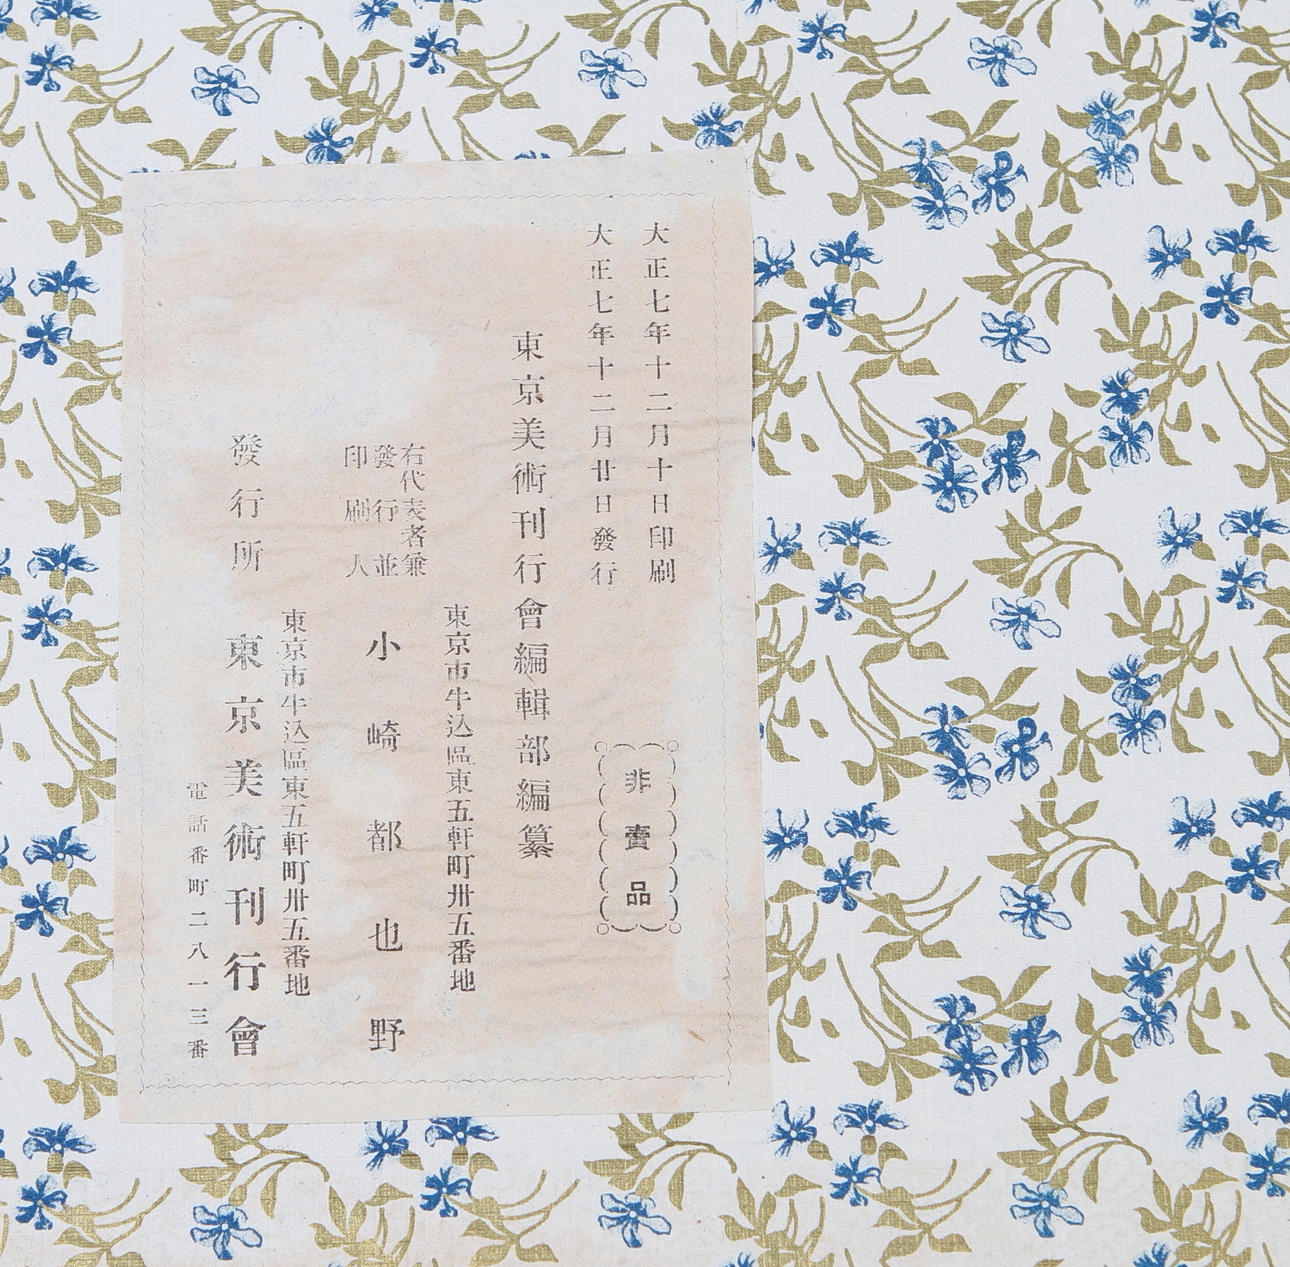 大正七年十二月十日印刷
大正七年十二月廿日發行
非賣品
東京美術刊行會編輯部編纂
東京市牛込區東五軒町卅五番地
右代表者兼
發行並
印刷人
小崎都也野
東京市牛込區東五軒町卅五番地
發行所 東京美術刊行會
電話番町二八一三番